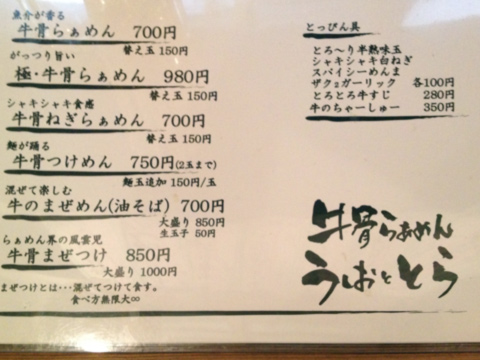 魚介が香る
牛骨らぁめん 700円
替え玉 150円
がっつり旨い
極・牛骨らぁめん 980円
替え玉 150円
シャキシャキ食感
牛骨ねぎらぁめん 700円
替え玉 150円
麺が踊る
牛骨つけめん 750円(2玉まで)
麺玉追加 150円/玉
混ぜて楽しむ
牛のまぜめん(油そば) 700円
大盛り 850円
生玉子 50円
らぁめん界の風雲児
牛骨まぜつけ 850円
大盛り 1000円
まぜつけとは・・・混ぜてつけて食す。
食べ方無限大∞
とっぴん具
とろ〜り半熟味玉
シャキシャキ白ねぎ
スパイシーめんま
ザクzガーリック 各100円
とろとろ牛すじ 280円
牛のちゃーしゅー 350円
牛骨らぁめん
うしおととら